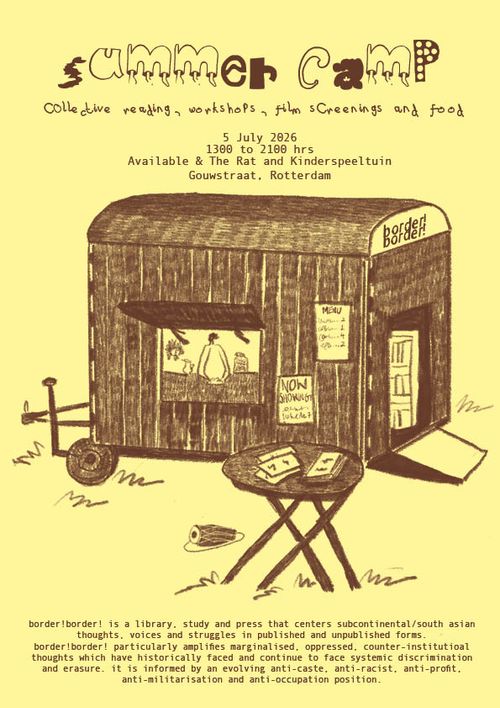 summer camp
Collective reading, workshops, film screenings and food
5 July 2026
1300 to 2100 hrs
Available & The Rat and Kinderspeeltuin
Gouwstraat, Rotterdam
border!
border!
MENU
NOW
SHOWING
border!border! is a library, study and press that centers subcontinental/south asian
thoughts, voices and struggles in published and unpublished forms.
border!border! particularly amplifies marginalised, oppressed, counter-institutioal
thoughts which have historically faced and continue to face systemic discrimination
and erasure. it is informed by an evolving anti-caste, anti-racist, anti-profit,
anti-militarisation and anti-occupation position.